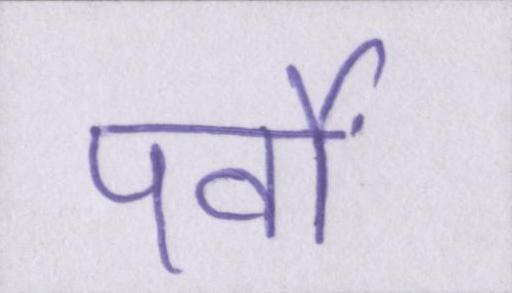 पर्वों